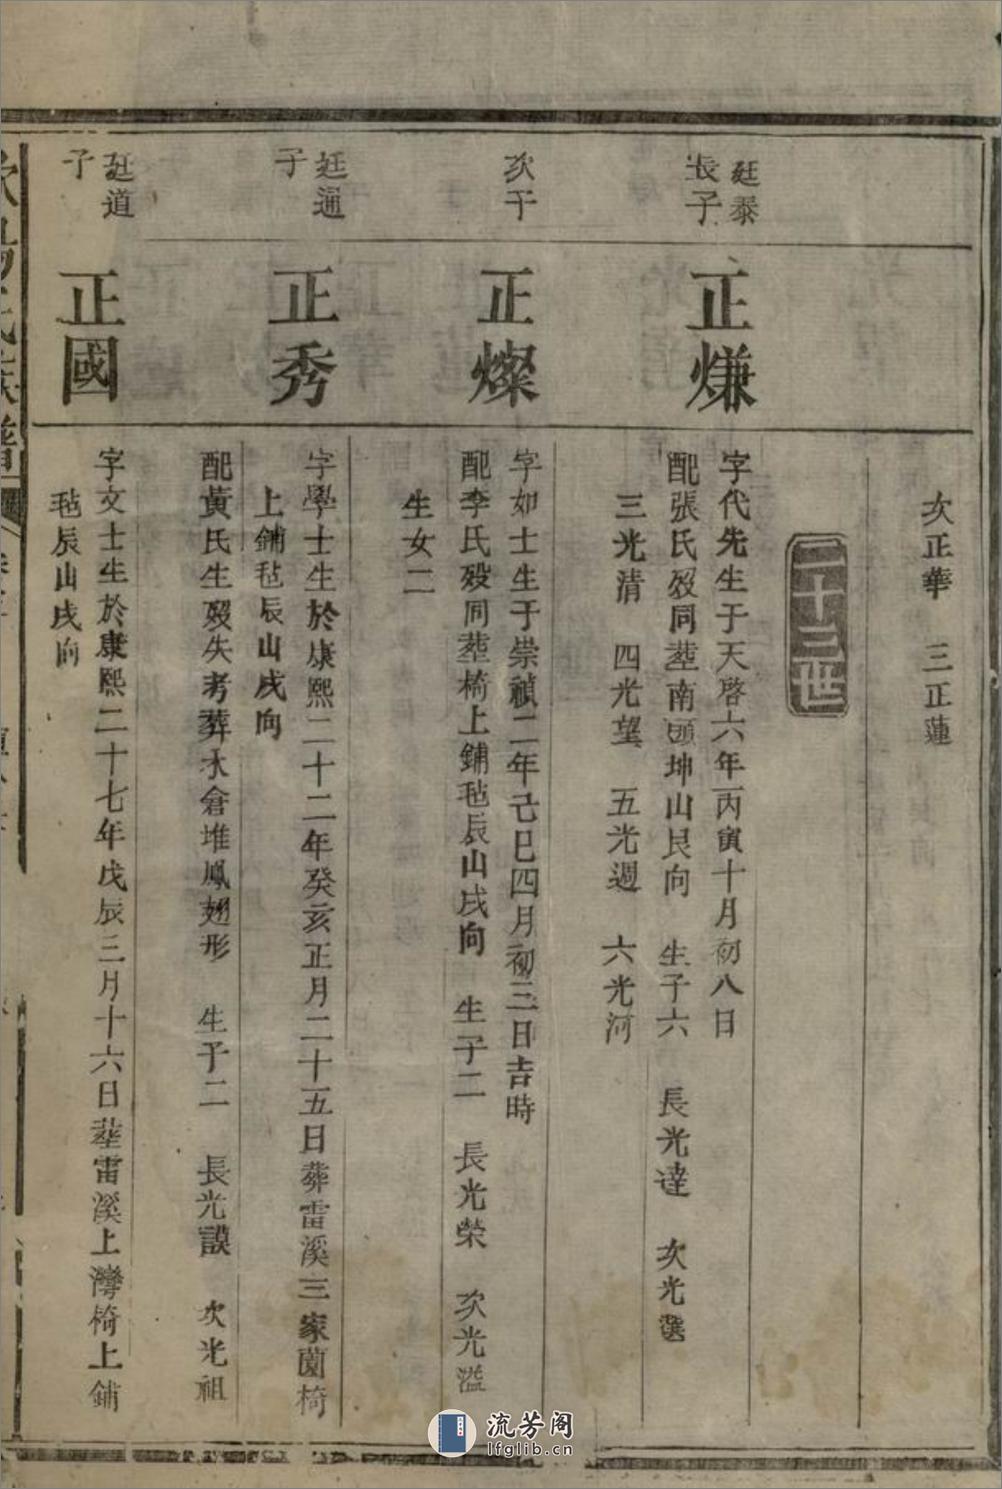 次正華　三正蓮
二十三世
廷泰
長子
正㷿
字代先生于天啓六年丙寅十月初八日
配張氏歿同塟南頭坤山艮向　生子六　長光達　次光選
三光清　四光望　五光週　六光河
次子
正燦
字如士生于崇禎二年己巳四月初三日吉時
配李氏歿同塟椅上鋪毡辰山戌向　生子二　長光榮　次光溢
生女二
廷通
子
正秀
字學士生於康熙二十二年癸亥正月二十五日葬雷溪三家園椅
上鋪毡辰山戌向
配黃氏生歿失考葬水倉堆鳳翅形　生子二　長光謨　次光祖
廷道
子
正國
字文士生於康熙二十七年戊辰三月十六日塟雷溪上灣椅上鋪
毡辰山戌向
氏族譜
流芳阁
lfglib.cn